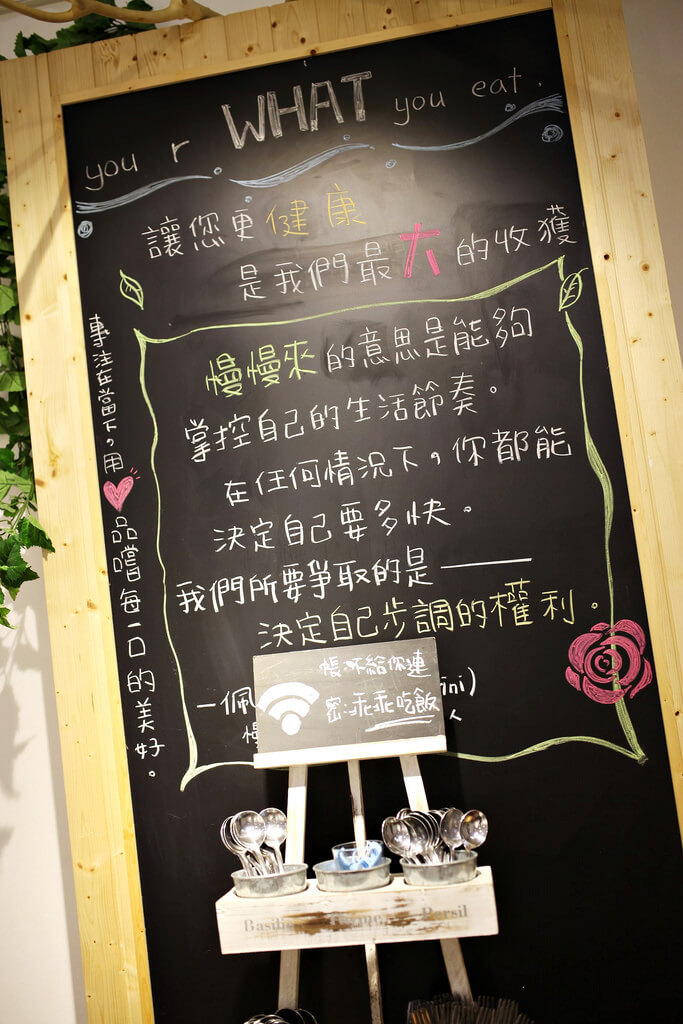 you r WHAT you eat.
讓您更健康
是我們最大的收獲
專注在當下，用
品嚐每一口的美好。
慢慢來的意思是能夠
掌控自己的生活節奏。
在任何情況下，你都能
決定自己要多快。
我們所要爭取的是——
決定自己步調的權利。
—佩
ini)
慢
人
帳：不給你連
密：乖乖吃飯
Basili
Persil